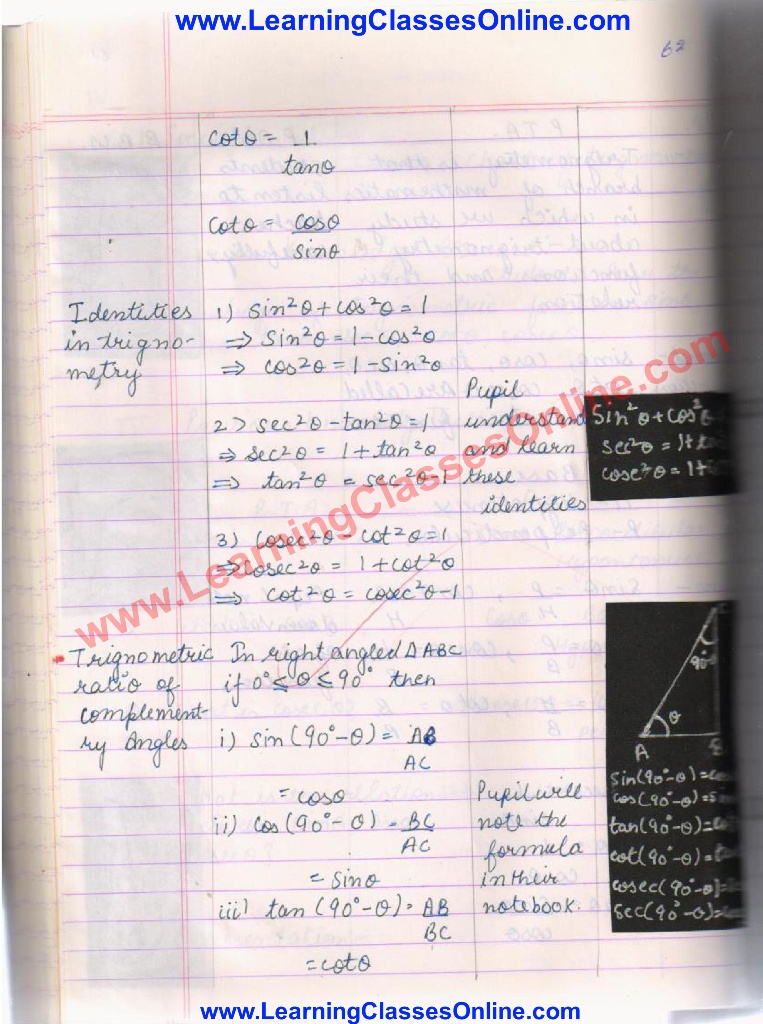 www.LearningClassesOnline.com
62
cotθ = 1
tanθ
cotθ = cosθ
sinθ
Identities
in trigno-
metry
1) Sin²θ + cos²θ = 1
⇒ Sin²θ = 1 - cos²θ
⇒ cos²θ = 1 - Sin²θ
2) sec²θ - tan²θ = 1
⇒ sec²θ = 1 + tan²θ
⇒ tan²θ = sec²θ - 1
3) Cosec²θ - cot²θ = 1
⇒ Cosec²θ = 1 + cot²θ
⇒ cot²θ = cosec²θ - 1
Pupil
understand
and learn
these
identities
Sin²θ + cos²θ
sec²θ = 1+
cosec²θ = 1+
www.LearningClassesOnline.com
Trignometric
ratio of
complement-
ry Angles
In right angled Δ ABC
if 0° ≤ θ ≤ 90° then
i) sin (90° - θ) = AB
AC
= cosθ
ii) cos (90° - θ) = BC
AC
= Sinθ
iii) tan (90° - θ) = AB
BC
= cotθ
Pupil will
note the
formula
in their
notebook.
90°
θ
A
B
Sin(90° - θ) =
cos(90° - θ) =
tan(90° - θ) =
cot(90° - θ) =
cosec(90° - θ) =
sec(90° - θ) =
www.LearningClassesOnline.com